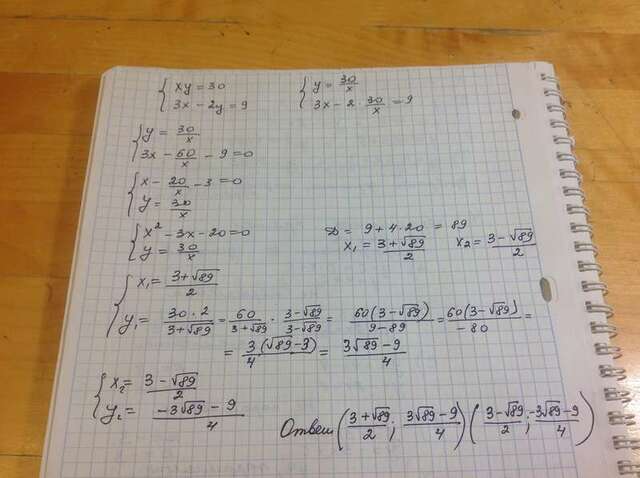 { xy = 30    { y = 30/x
{ 3x - 2y = 9    { 3x - 2 · 30/x = 9
{ y = 30/x
{ 3x - 60/x - 9 = 0
{ x - 20/x - 3 = 0
{ y = 30/x
{ x² - 3x - 20 = 0    D = 9 + 4 · 20 = 89
{ y = 30/x    x₁ = (3+√89)/2    x₂ = (3-√89)/2
{ x₁ = (3+√89)/2
{ y₁ = (30 · 2)/(3+√89) = 60/(3+√89) · (3-√89)/(3-√89) = 60(3-√89)/(9-89) = 60(3-√89)/(-80) =
= 3(√89-3)/4 = (3√89-9)/4
{ x₂ = (3-√89)/2
{ y₂ = (-3√89-9)/4    Ответ ((3+√89)/2; (3√89-9)/4) ((3-√89)/2; (-3√89-9)/4)